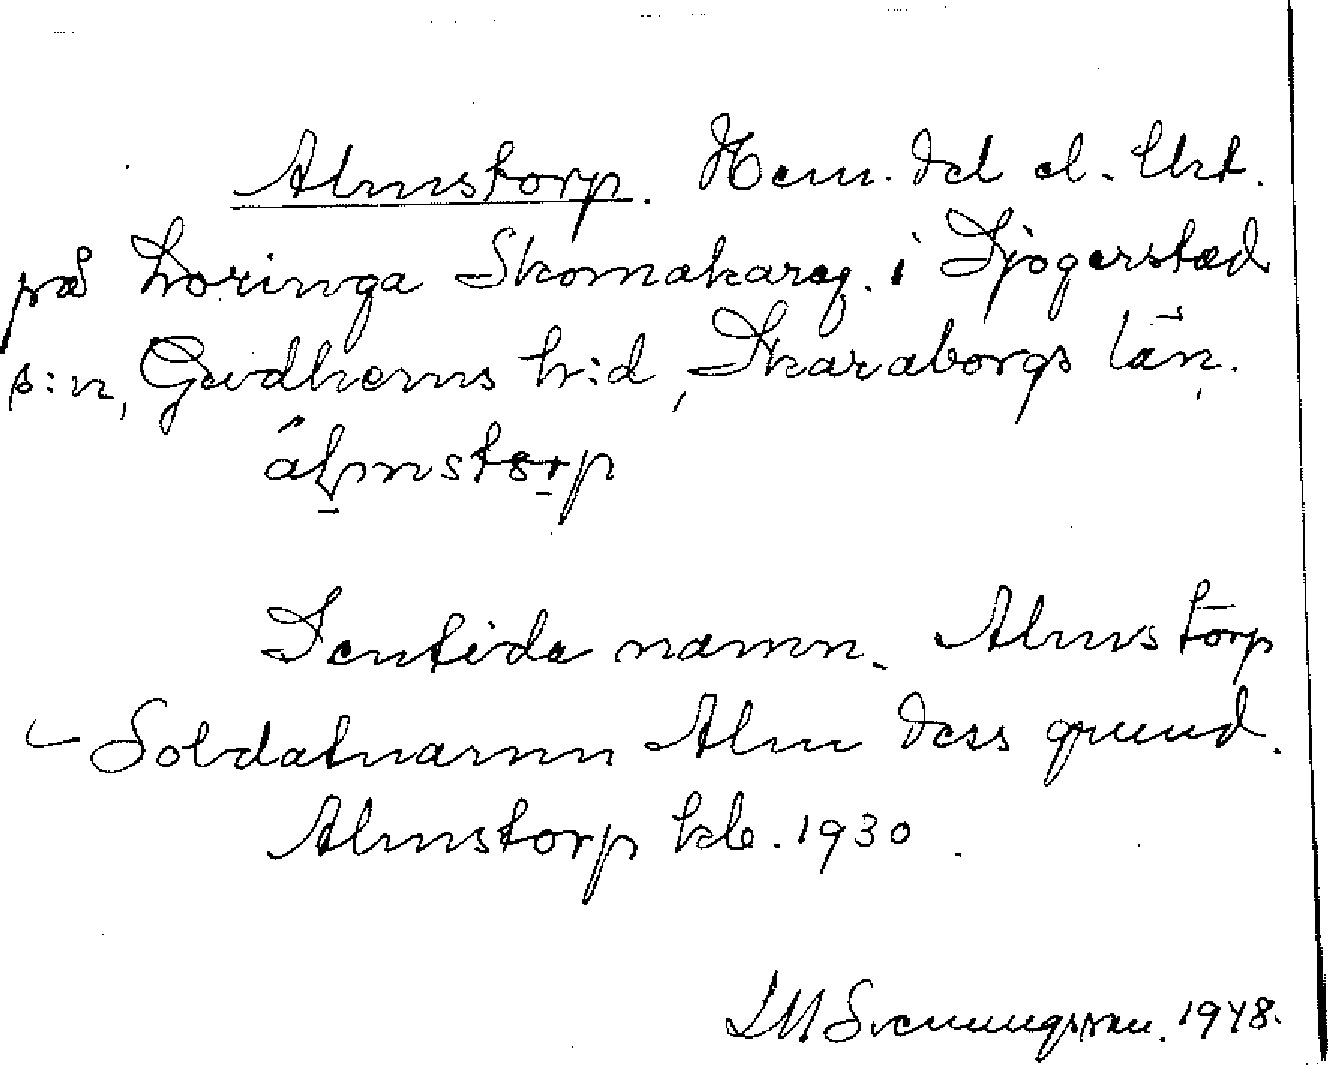 Almstorp. Hem. del el. Urt.
på Loringa Skomakareg. i Sjogerstad
s:n, Gudhems h:d, Skaraborgs län.
álmstorp
Sentida namn. Almstorp
Soldatnamn Alm dess grund.
Almstorp kb. 1930.
LM Svenungsson. 1948.